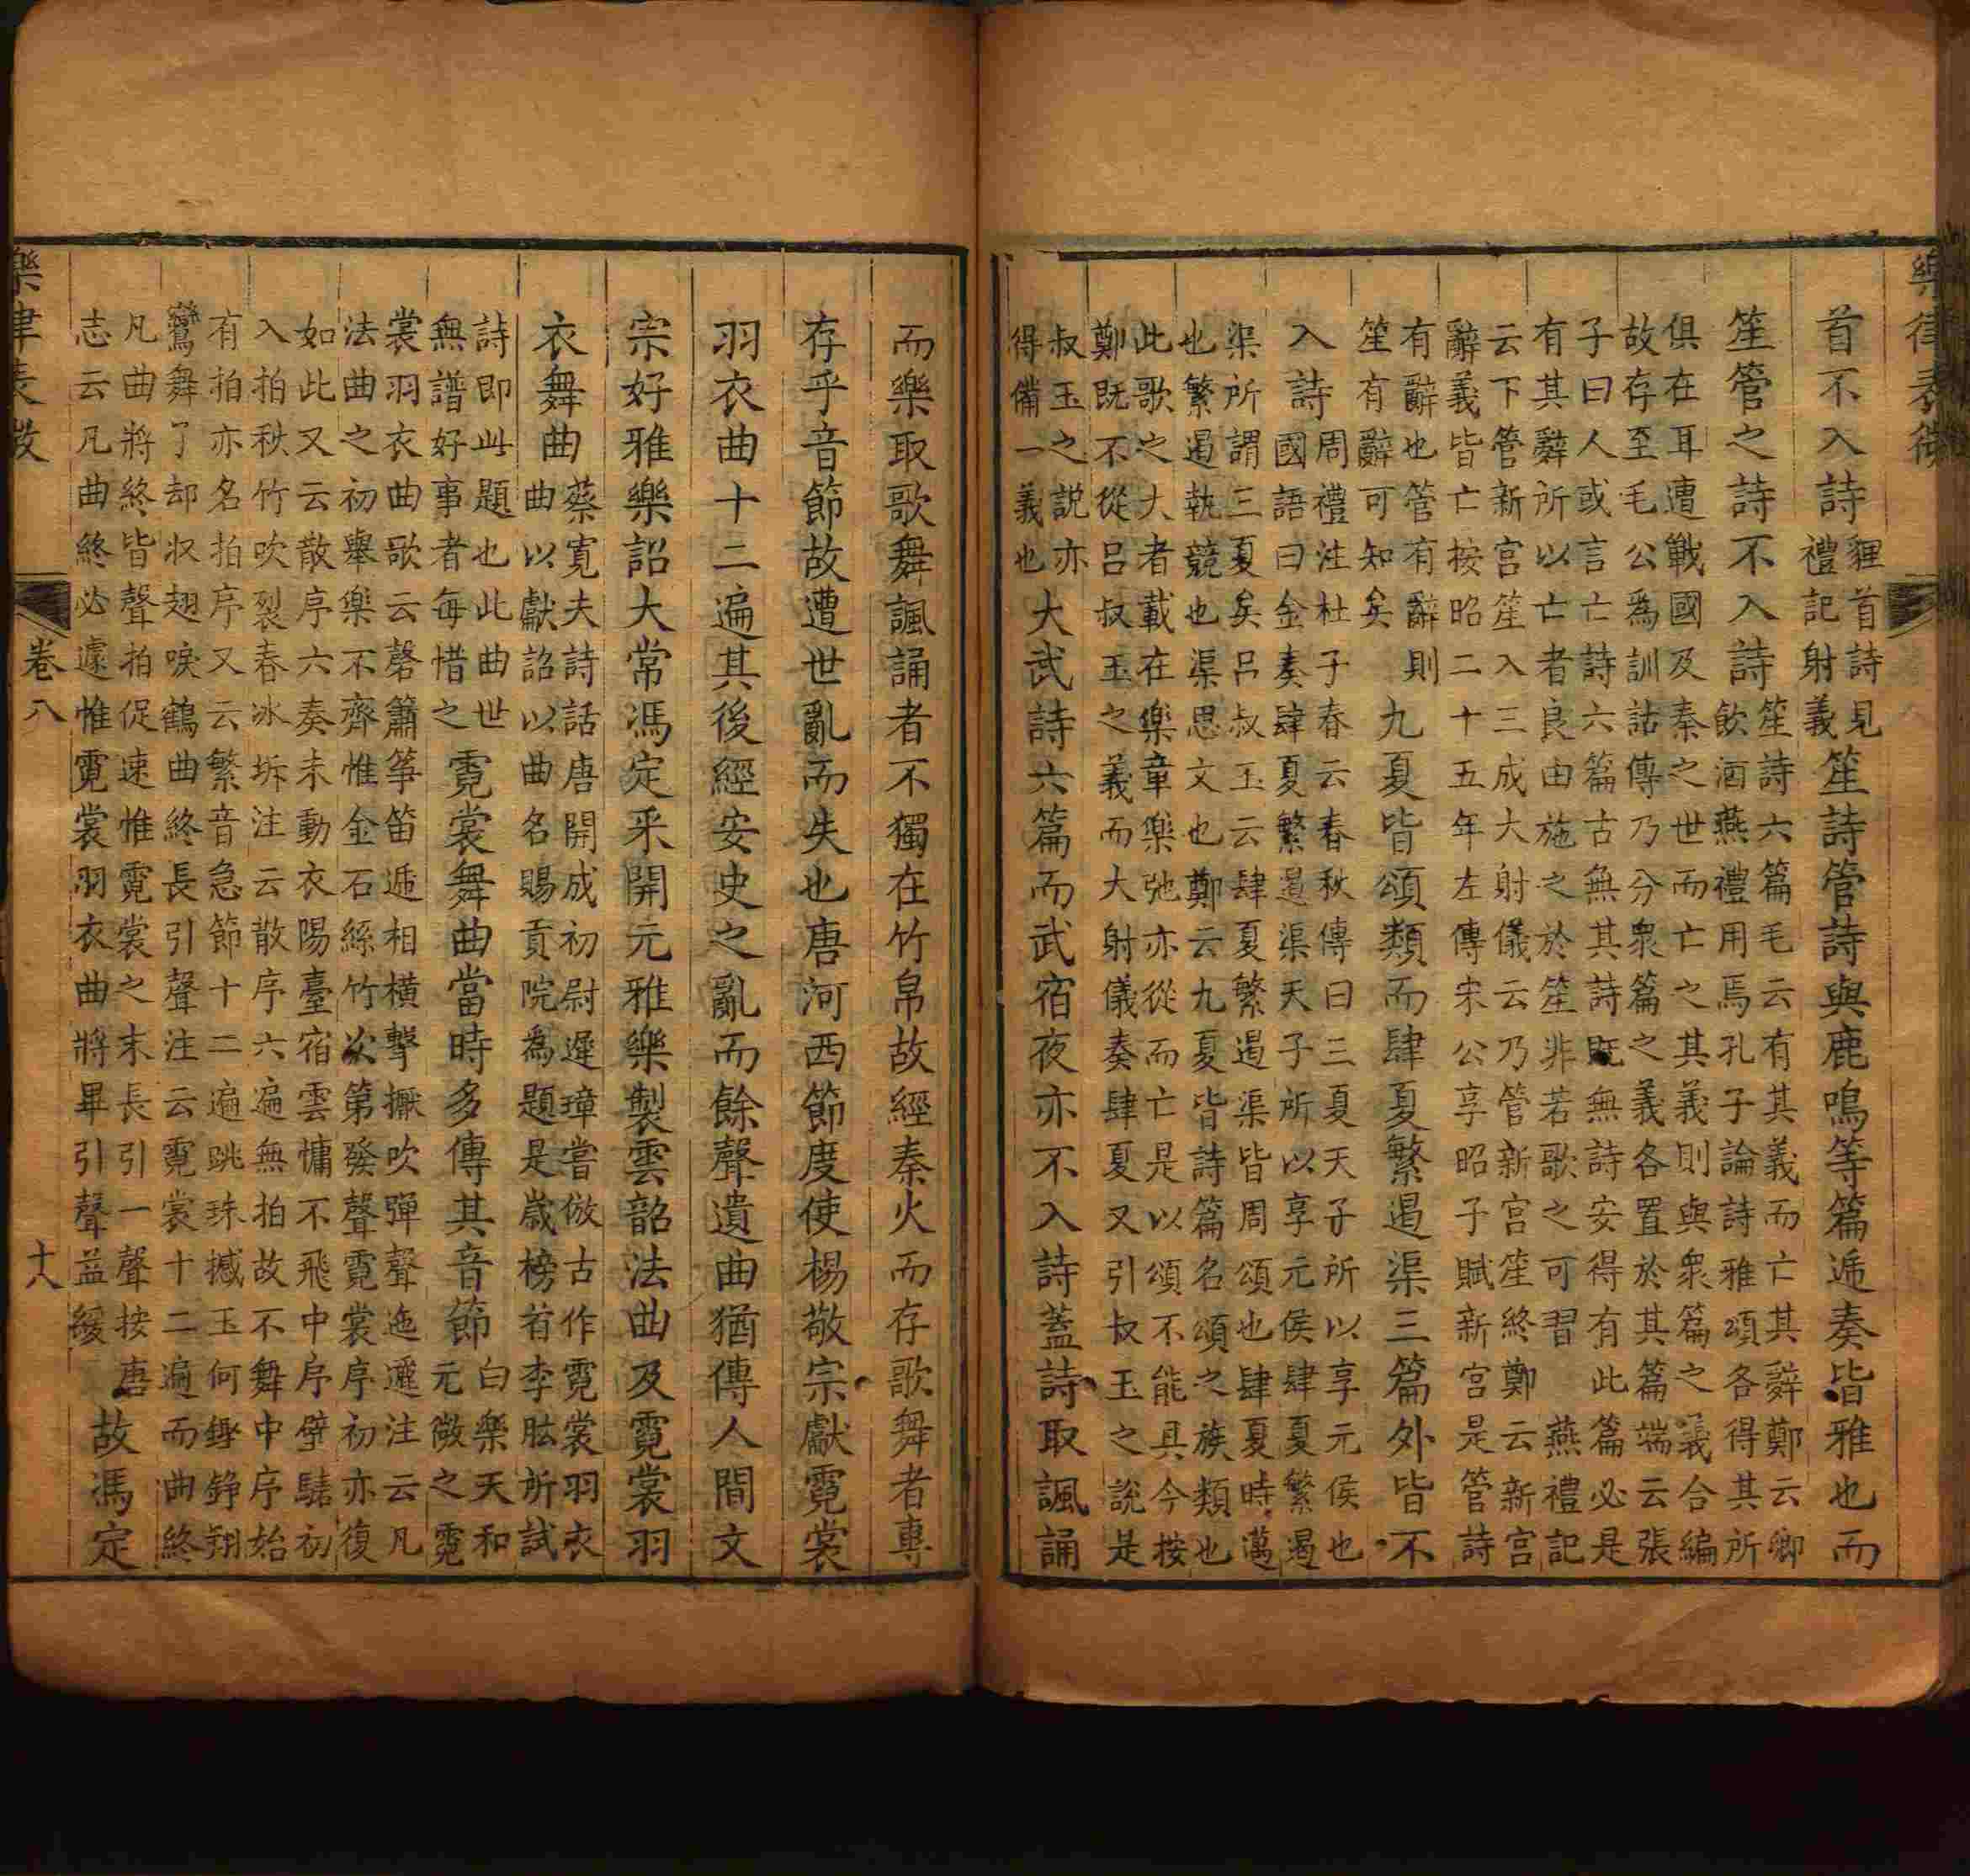 樂律表微
首不入詩
貍首詩見
禮記射義
笙詩管詩與鹿鳴等篇遞奏皆雅也而
笙管之詩不入詩
笙詩六篇毛云有其義而亡其辭鄭云鄉
飲酒燕禮用焉孔子論詩雅頌各得其所
俱在耳遭戰國及秦之世而亡之其義則與衆篇之義合編
故存至毛公爲訓詁傳乃分衆篇之義各置於其篇端云張
子曰人或言亡詩六篇古無其詩既無詩安得有此篇必是
有其辭所以亡者良由施之於笙非若歌之可習 燕禮記
云下管新宮笙入三成大射儀云乃管新宮笙終鄭云新宮
辭義皆亡按昭二十五年左傳宋公享昭子賦新宮是管詩
有辭也管有辭則
笙有辭可知矣
九夏皆頌類而肆夏繁遏渠三篇外皆不
入詩
周禮注杜子春云春秋傳曰三夏天子所以享元侯也
國語曰金奏肆夏繁遏渠天子所以享元侯肆夏繁遏
渠所謂三夏矣呂叔玉云肆夏繁遏渠皆周頌也肆夏時邁
也繁遏執競也渠思文也鄭云九夏皆詩篇名頌之族類也
此歌之大者載在樂章樂弛亦從而亡是以頌不能具今按
鄭既不從呂叔玉之義而大射儀奏肆夏又引叔玉之說是
叔玉之說亦
得備一義也
大武詩六篇而武宿夜亦不入詩蓋詩取諷誦
而樂取歌舞諷誦者不獨在竹帛故經秦火而存歌舞者專
存乎音節故遭世亂而失也唐河西節度使楊敬宗獻霓裳
羽衣曲十二遍其後經安史之亂而餘聲遺曲猶傳人間文
宗好雅樂詔大常馮定采開元雅樂製雲韶法曲及霓裳羽
衣舞曲
蔡寬夫詩話唐開成初尉遲璋嘗倣古作霓裳羽衣
曲以獻詔以曲名賜貢院爲題是歲榜首李肱所試
詩即此題也此曲世
無譜好事者每惜之
霓裳舞曲當時多傳其音節
白樂天和
元微之霓
裳羽衣曲歌云磬簫筝笛遞相橫擊擫吹彈聲迤邐注云凡
法曲之初舉樂不齊惟金石絲竹次第發聲霓裳序初亦復
如此又云散序六奏未動衣陽臺宿雲慵不飛中序擘騞初
入拍秋竹吹裂春冰坼注云散序六遍無拍故不舞中序始
有拍亦名拍序又云繁音急節十二遍跳珠撼玉何鏗錚翔
鸞舞了却收翅唳鶴曲終長引聲注云霓裳十二遍而曲終
凡曲將終皆聲拍促速惟霓裳之末長引一聲按 唐
志云凡曲終必遽惟霓裳羽衣曲將畢引聲益緩
故馮定
樂律表微
卷八
十八